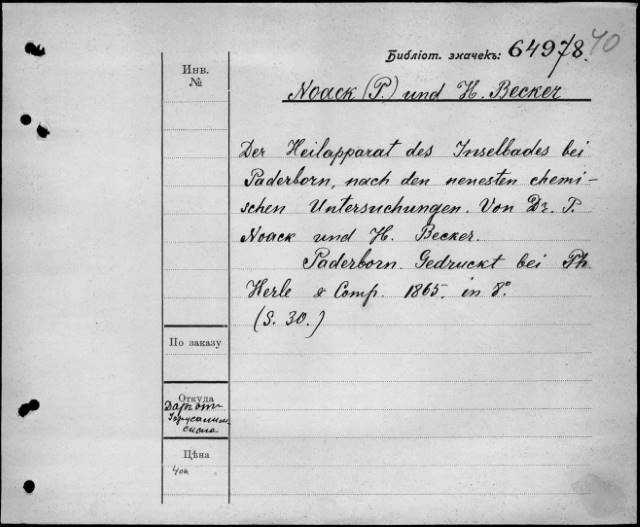 Библіот. значекъ: 64978. 40
Инв.
№
Noack (P.) und H. Becker
Der Heilapparat des Inselbades bei
Paderborn, nach den neuesten chemi-
schen Untersuchungen. Von Dr. P.
Noack und H. Becker.
Paderborn. Gedruckt bei Ph.
Herle & Comp. 1865. in 8°
(S. 30.)
По заказу
Откуда
Цѣна